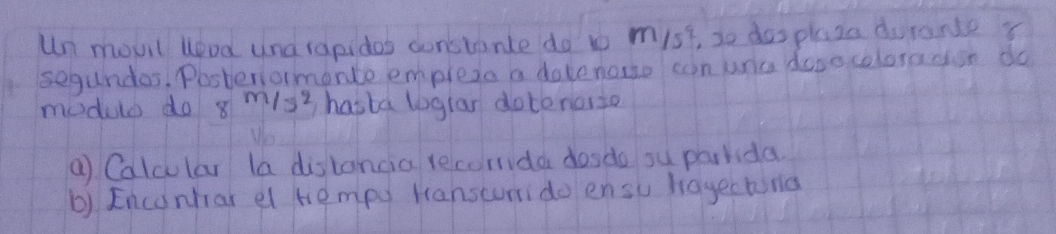 Un movil lleva una rapidos constante de 10 m/s², se desplaza durante 8
segundos. Posteriormente empieza a detenerse con una desaceloración de
modulo de 8 m/s², hasta lograr detenerse
Vo
a) Calcular la distancia recorrida desde su partida.
b) Encontrar el tiempo transcurrido en su trayectoria